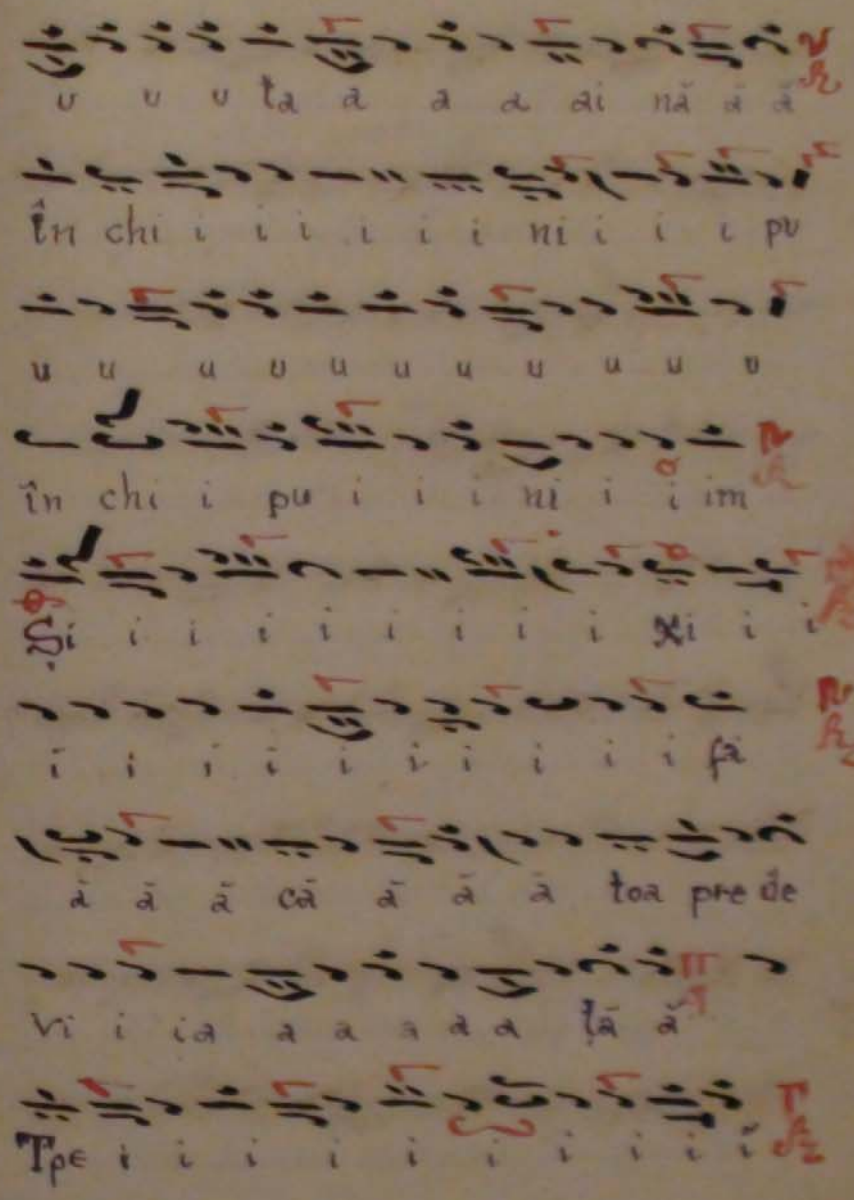 u u u ta a a a ai nă ă ă
În chi i i i i i i ni i i i pu
u u u u u u u u u u u
în chi i pu i i i ni i i im
Și i i i i i i i i xi i i
i i i i i i i i i i fă
ă ă ă că ă ă ă toa pre de
Vi i ia a a a a a ță ă
Tρε i i i i i i i i i ĭ